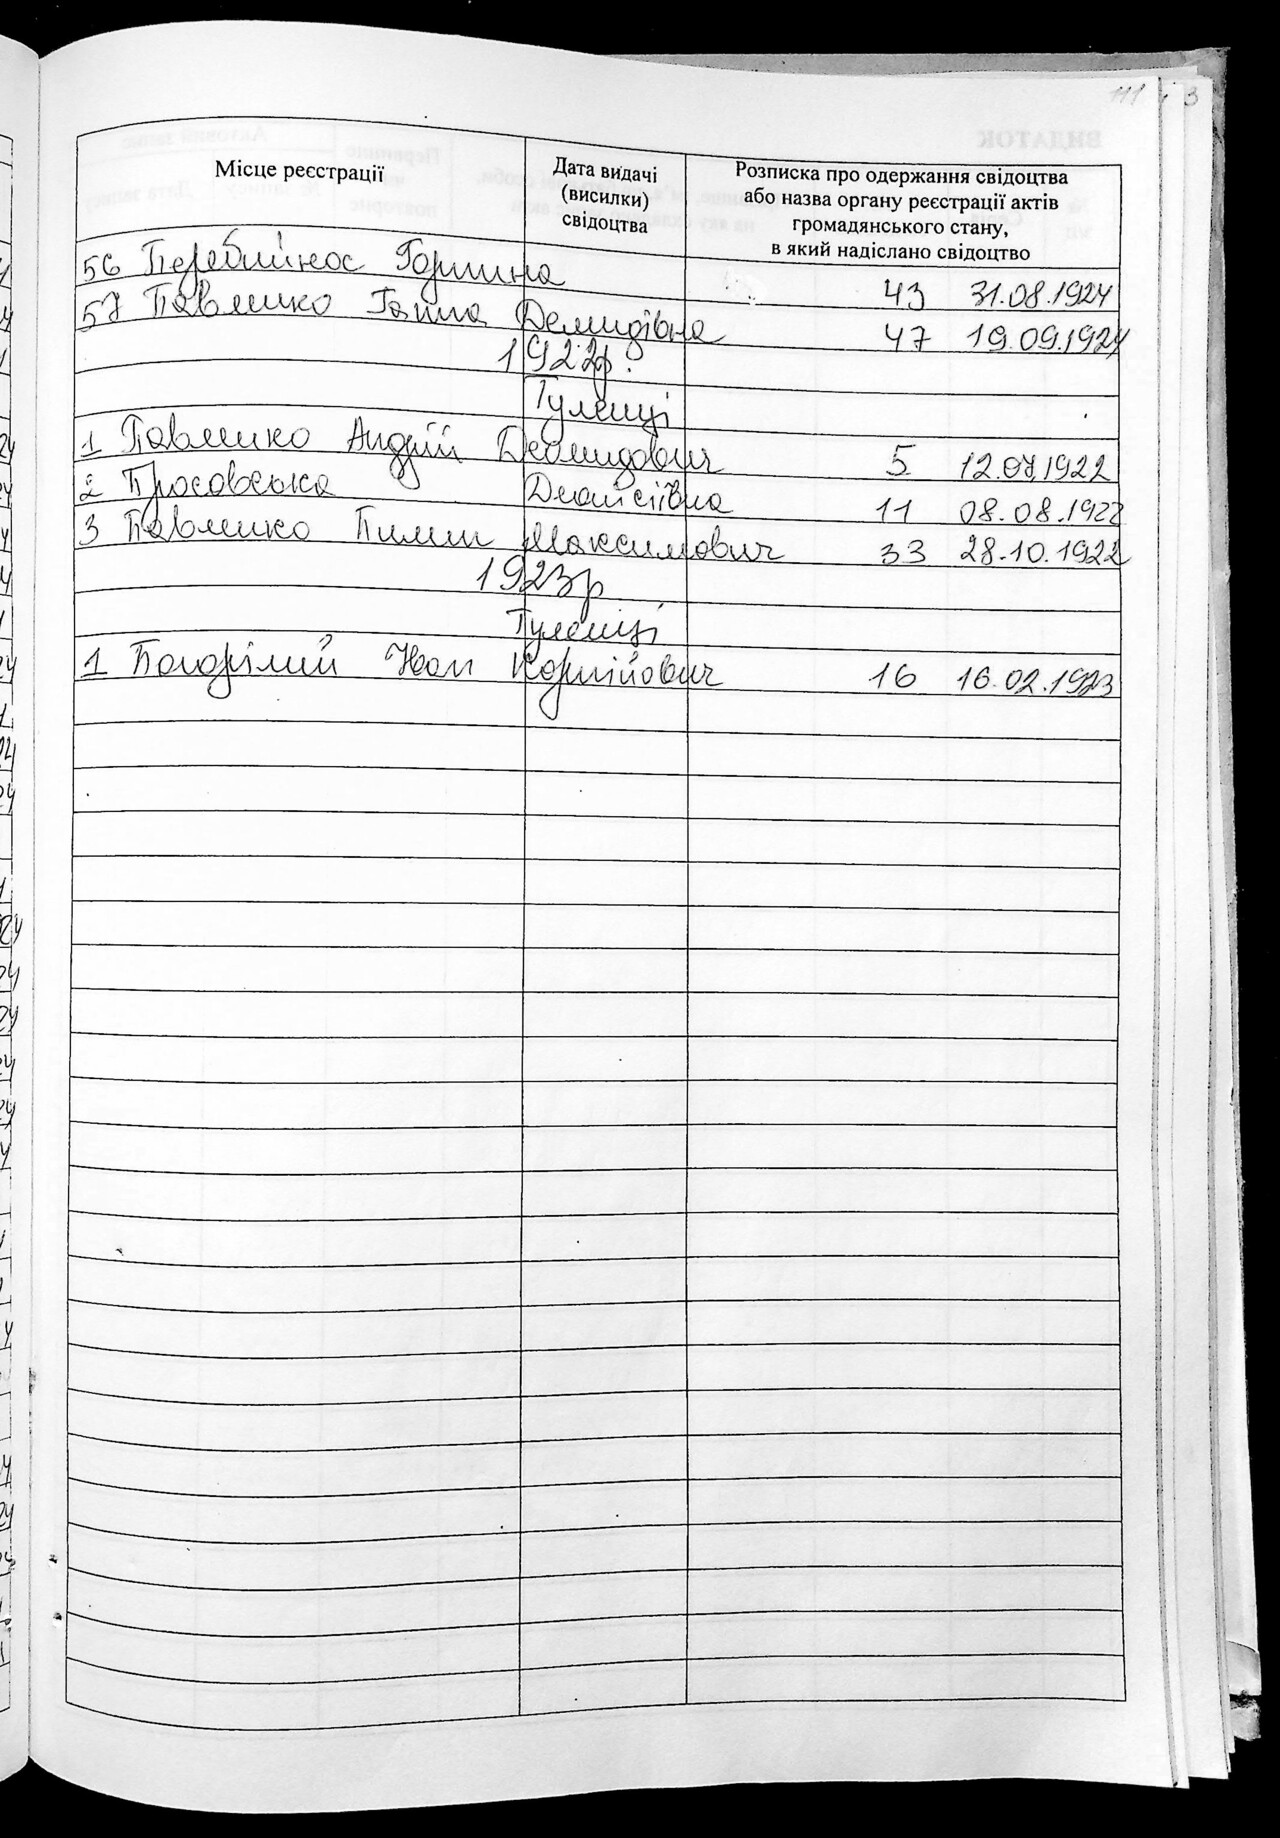 111
3
Місце реєстрації
Дата видачі
(висилки)
свідоцтва
Розписка про одержання свідоцтва
або назва органу реєстрації актів
громадянського стану,
в який надіслано свідоцтво
56 Перебийніс Горпина 43 31.08.1924
57 Павленко Ганна Демидівна 47 19.09.1924
1922р.
Гуленці
1 Павленко Андрій Демидович 5 12.07.1922
2 11 08.08.1922
3 Павленко Пилип Максимович 33 28.10.1922
1923р
Гуленці
1 Погорілий Іван Корнійович 16 16.02.1923